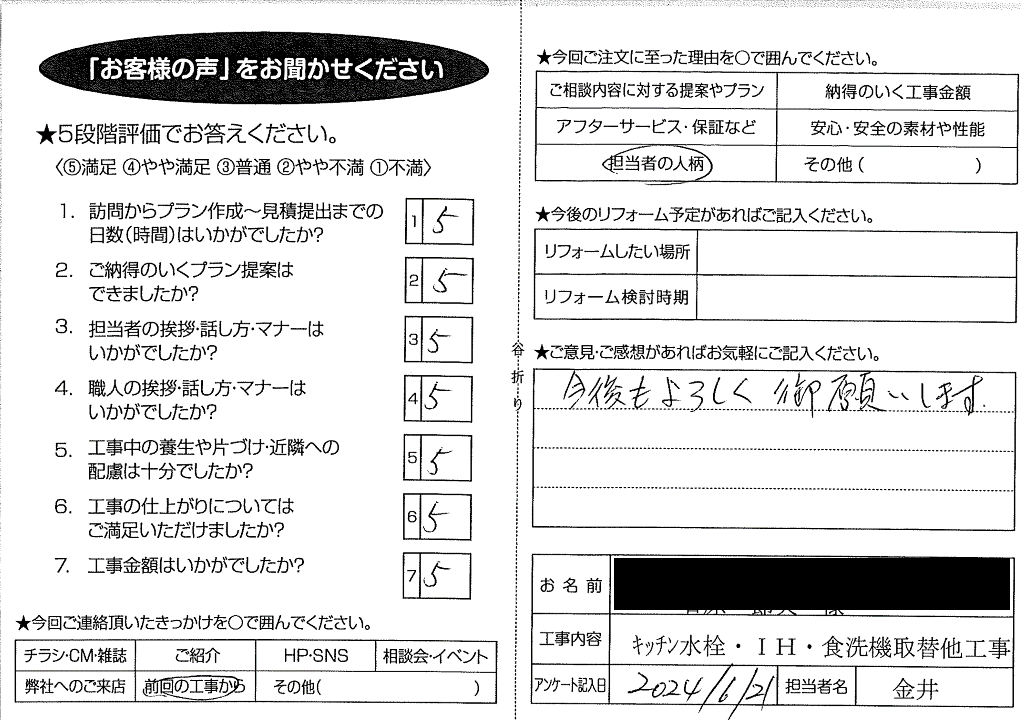 「お客様の声」をお聞かせください
★5段階評価でお答えください。
〈⑤満足 ④やや満足 ③普通 ②やや不満 ①不満〉
1. 訪問からプラン作成～見積提出までの
日数(時間)はいかがでしたか?
1 5
2. ご納得のいくプラン提案は
できましたか?
2 5
3. 担当者の挨拶・話し方・マナーは
いかがでしたか?
3 5
4. 職人の挨拶・話し方・マナーは
いかがでしたか?
4 5
5. 工事中の養生や片づけ・近隣への
配慮は十分でしたか?
5 5
6. 工事の仕上がりについては
ご満足いただけましたか?
6 5
7. 工事金額はいかがでしたか?
7 5
★今回ご連絡頂いたきっかけを〇で囲んでください。
チラシ・CM・雑誌 ご紹介 HP・SNS 相談会・イベント
弊社へのご来店 前回の工事から その他( )
谷折り
★今回ご注文に至った理由を〇で囲んでください。
ご相談内容に対する提案やプラン 納得のいく工事金額
アフターサービス・保証など 安心・安全の素材や性能
担当者の人柄 その他( )
★今後のリフォーム予定があればご記入ください。
リフォームしたい場所
リフォーム検討時期
★ご意見・ご感想があればお気軽にご記入ください。
今後もよろしく御願いします.
お名前
工事内容 キッチン水栓・IH・食洗機取替他工事
アンケート記入日 2024/6/21 担当者名 金井